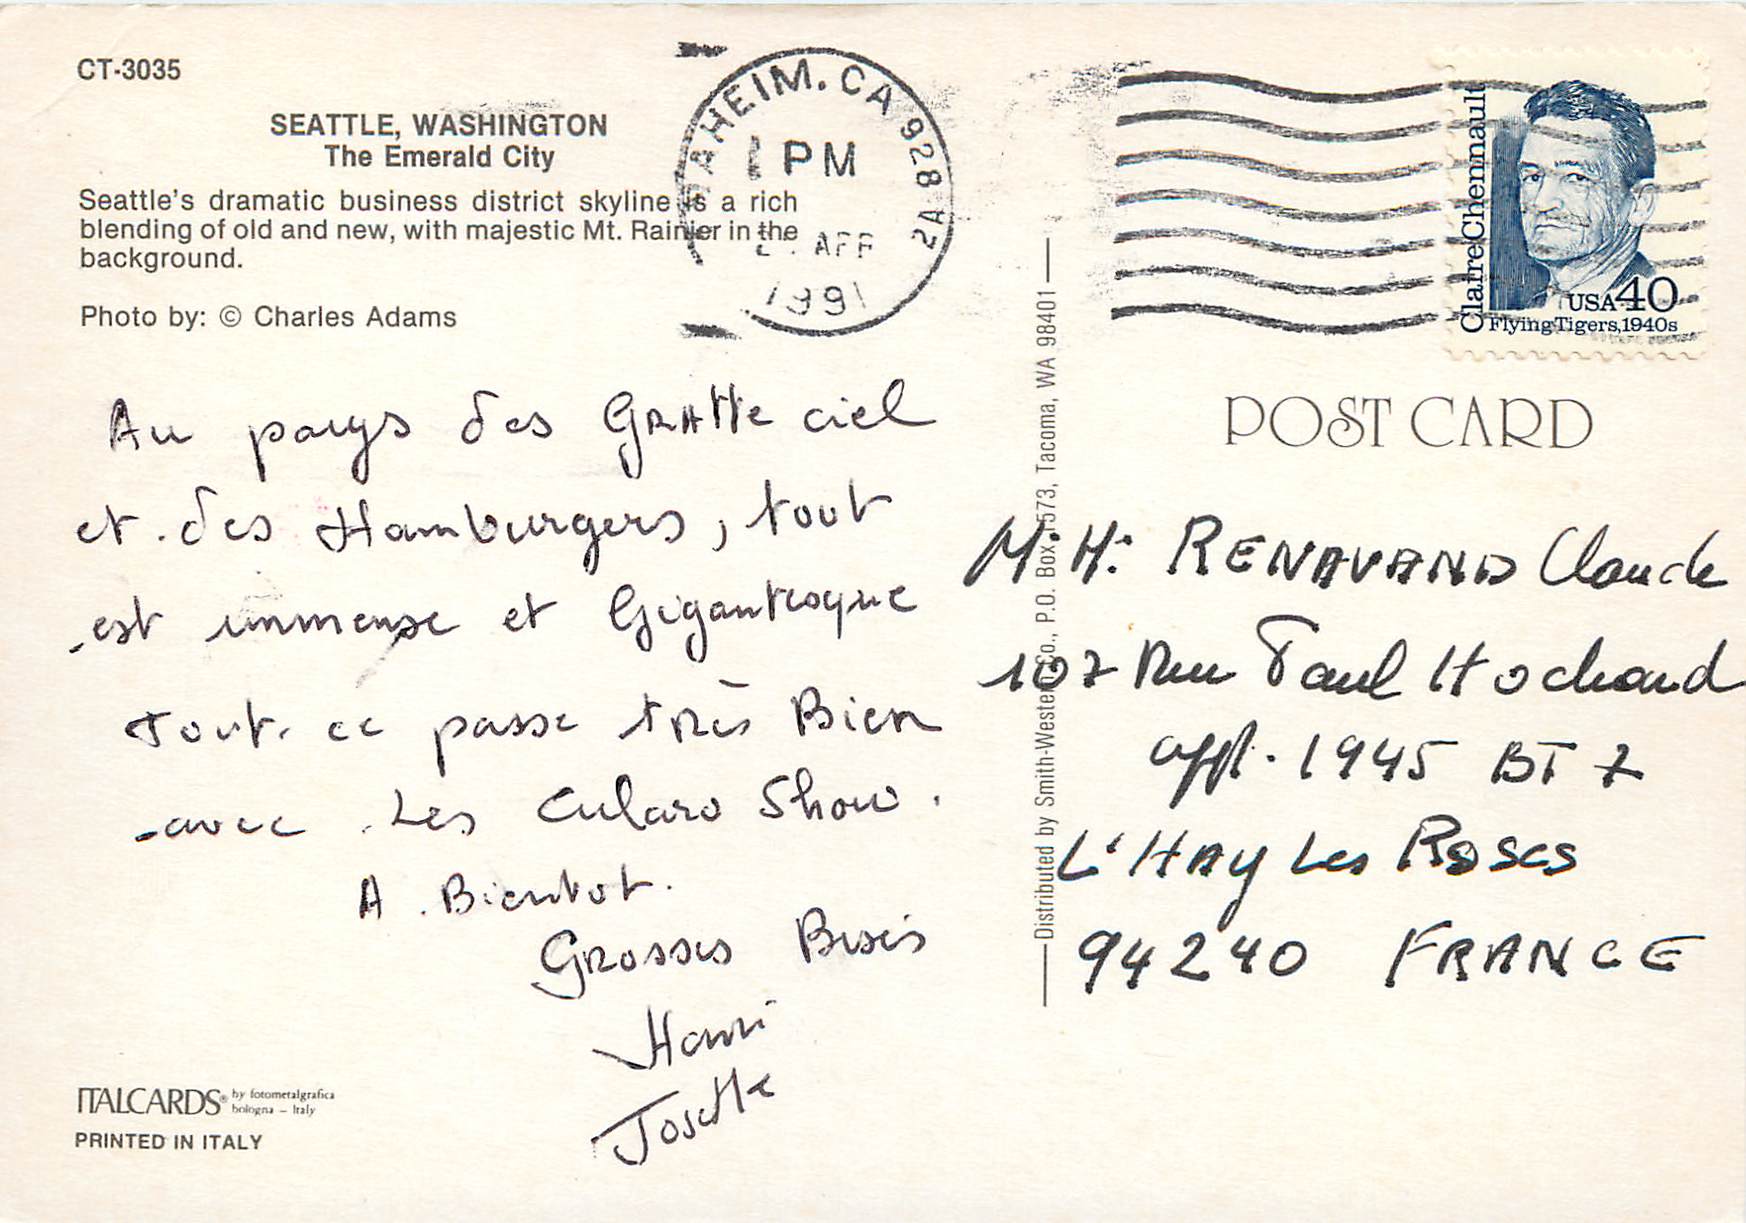 CT-3035
SEATTLE, WASHINGTON
The Emerald City
Seattle's dramatic business district skyline is a rich
blending of old and new, with majestic Mt. Rainier in the
background.
Photo by: © Charles Adams
AHEIM. CA 928 2A
PM
1991
Claire Chennault
USA 40
Flying Tigers, 1940s
POST CARD
Au pays des GRATTe ciel
et des Hamburgers, tout
est immense et Gigantesque
Tout ce passe très Bien
avec Les Cularo Show.
A Bientot.
GRosses Bises
Henri
Josette
Distributed by Smith-Western Co., P.O. Box 1573, Tacoma, WA 98401
RENAVAND Claude
107 Rue Paul Hochard
appt. 1945 BT 7
L'HAY Les Roses
94240 FRANCE
ITALCARDS® by fotometalgrafica
bologna - Italy
PRINTED IN ITALY